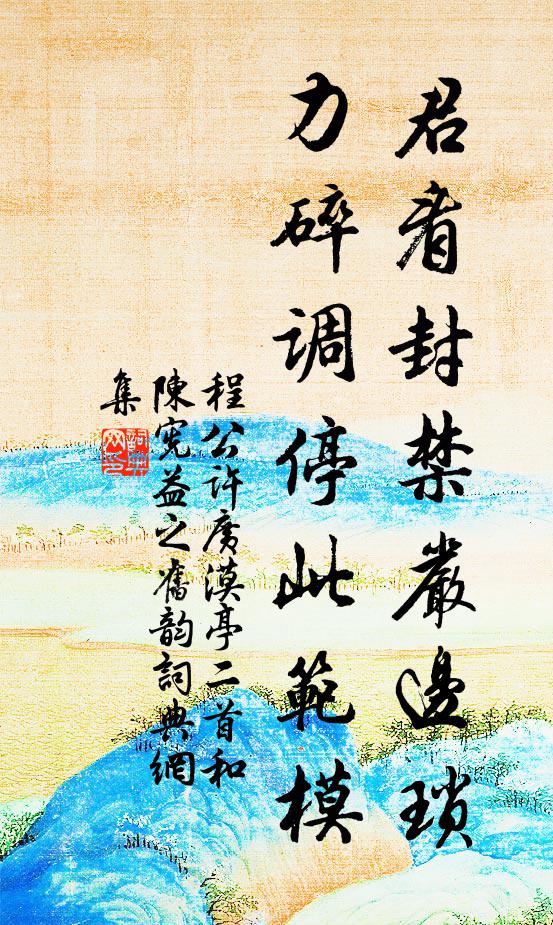 君看封禁嚴邊瑣
力碎調停此範模
程公許廣漠亭二首和
陳寃益之舊韵詞典網
集